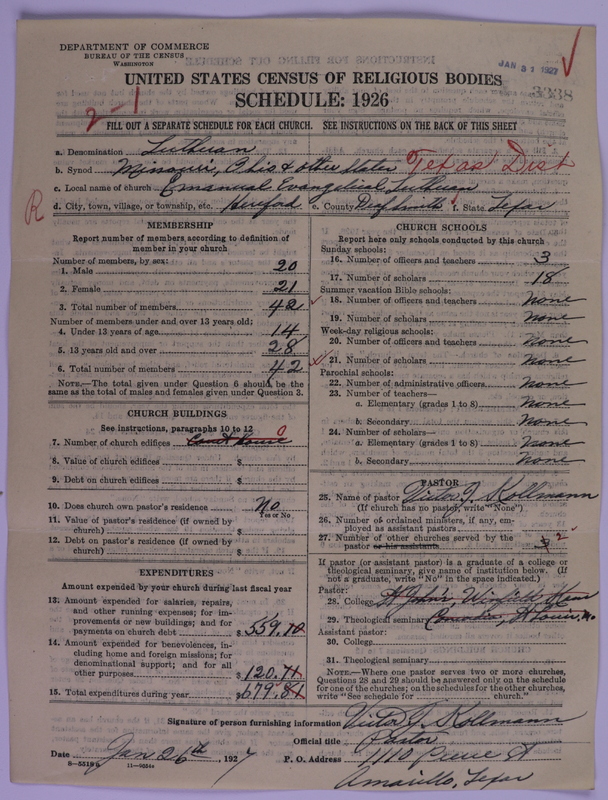 DEPARTMENT OF COMMERCE
BUREAU OF THE CENSUS
WASHINGTON
JAN 31 1927
UNITED STATES CENSUS OF RELIGIOUS BODIES
SCHEDULE: 1926
3338
2-1
FILL OUT A SEPARATE SCHEDULE FOR EACH CHURCH. SEE INSTRUCTIONS ON THE BACK OF THIS SHEET
a. Denomination Lutheran
b. Synod Missouri, Ohio & other States Texas Dist
c. Local name of church Emanuel Evangelical Lutheran
d. City, town, village, or township, etc. Hereford e. County Deaf Smith f. State Texas
R
MEMBERSHIP
Report number of members according to definition of member in your church
Number of members, by sex:
1. Male 20
2. Female 21
3. Total number of members 42
Number of members under and over 13 years old:
4. Under 13 years of age 14
5. 13 years old and over 28
6. Total number of members 42
NOTE.—The total given under Question 6 should be the
same as the total of males and females given under Question 3.
CHURCH BUILDINGS
See instructions, paragraphs 10 to 12
7. Number of church edifices Court house 0
8. Value of church edifices $
9. Debt on church edifices $
10. Does church own pastor's residence No
Yes or No
11. Value of pastor's residence (if owned by
church) $
12. Debt on pastor's residence (if owned by
church) $
EXPENDITURES
Amount expended by your church during last fiscal year
13. Amount expended for salaries, repairs,
and other running expenses; for im-
provements or new buildings; and for
payments on church debt $ 559.10
14. Amount expended for benevolences, in-
cluding home and foreign missions; for
denominational support; and for all
other purposes $ 120.71
15. Total expenditures during year $ 679.81
CHURCH SCHOOLS
Report here only schools conducted by this church
Sunday schools:
16. Number of officers and teachers 3
17. Number of scholars 18
Summer vacation Bible schools:
18. Number of officers and teachers None
19. Number of scholars None
Week-day religious schools:
20. Number of officers and teachers None
21. Number of scholars None
Parochial schools:
22. Number of administrative officers None
23. Number of teachers—
a. Elementary (grades 1 to 8) None
b. Secondary None
24. Number of scholars—
a. Elementary (grades 1 to 8) None
b. Secondary None
PASTOR
25. Name of pastor Victor J. Kollmann
(If church has no pastor, write "None")
26. Number of ordained ministers, if any, em-
ployed as assistant pastors
27. Number of other churches served by the
pastor or his assistants 2
If pastor (or assistant pastor) is a graduate of a college or
theological seminary, give name of institution below. (If
not a graduate, write "No" in the space indicated.)
Pastor:
28. College St John's, Winfield Kans
29. Theological seminary Concordia, St Louis, Mo
Assistant pastor:
30. College
31. Theological seminary
NOTE.—Where one pastor serves two or more churches,
Questions 28 and 29 should be answered only on the schedule
for one of the churches; on the schedules for the other churches,
write "See schedule for church."
Signature of person furnishing information Victor J. Kollmann
Official title Pastor
Date Jan 26th, 1927 P. O. Address 1110 Pierce St
8—5518 11—9224
Amarillo, Texas